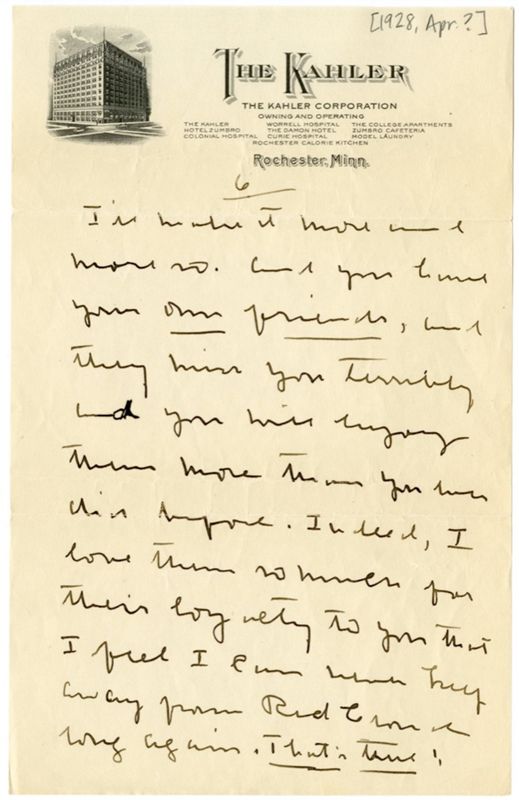 [1928, Apr.?]
THE KAHLER
THE KAHLER CORPORATION
OWNING AND OPERATING
THE KAHLER WORRELL HOSPITAL THE COLLEGE APARTMENTS
HOTEL ZUMBRO THE DAMON HOTEL ZUMBRO CAFETERIA
COLONIAL HOSPITAL CURIE HOSPITAL MODEL LAUNDRY
ROCHESTER CALORIE KITCHEN
Rochester, Minn.
6
I'll make it more and
more so. And you have
your own friends, and
they miss you terribly,
and you will enjoy
them more than you ever
did before. Indeed, I
love them so much for
their loyalty to you that
I feel I can never keep
away from Red Cloud
long again. That's true!